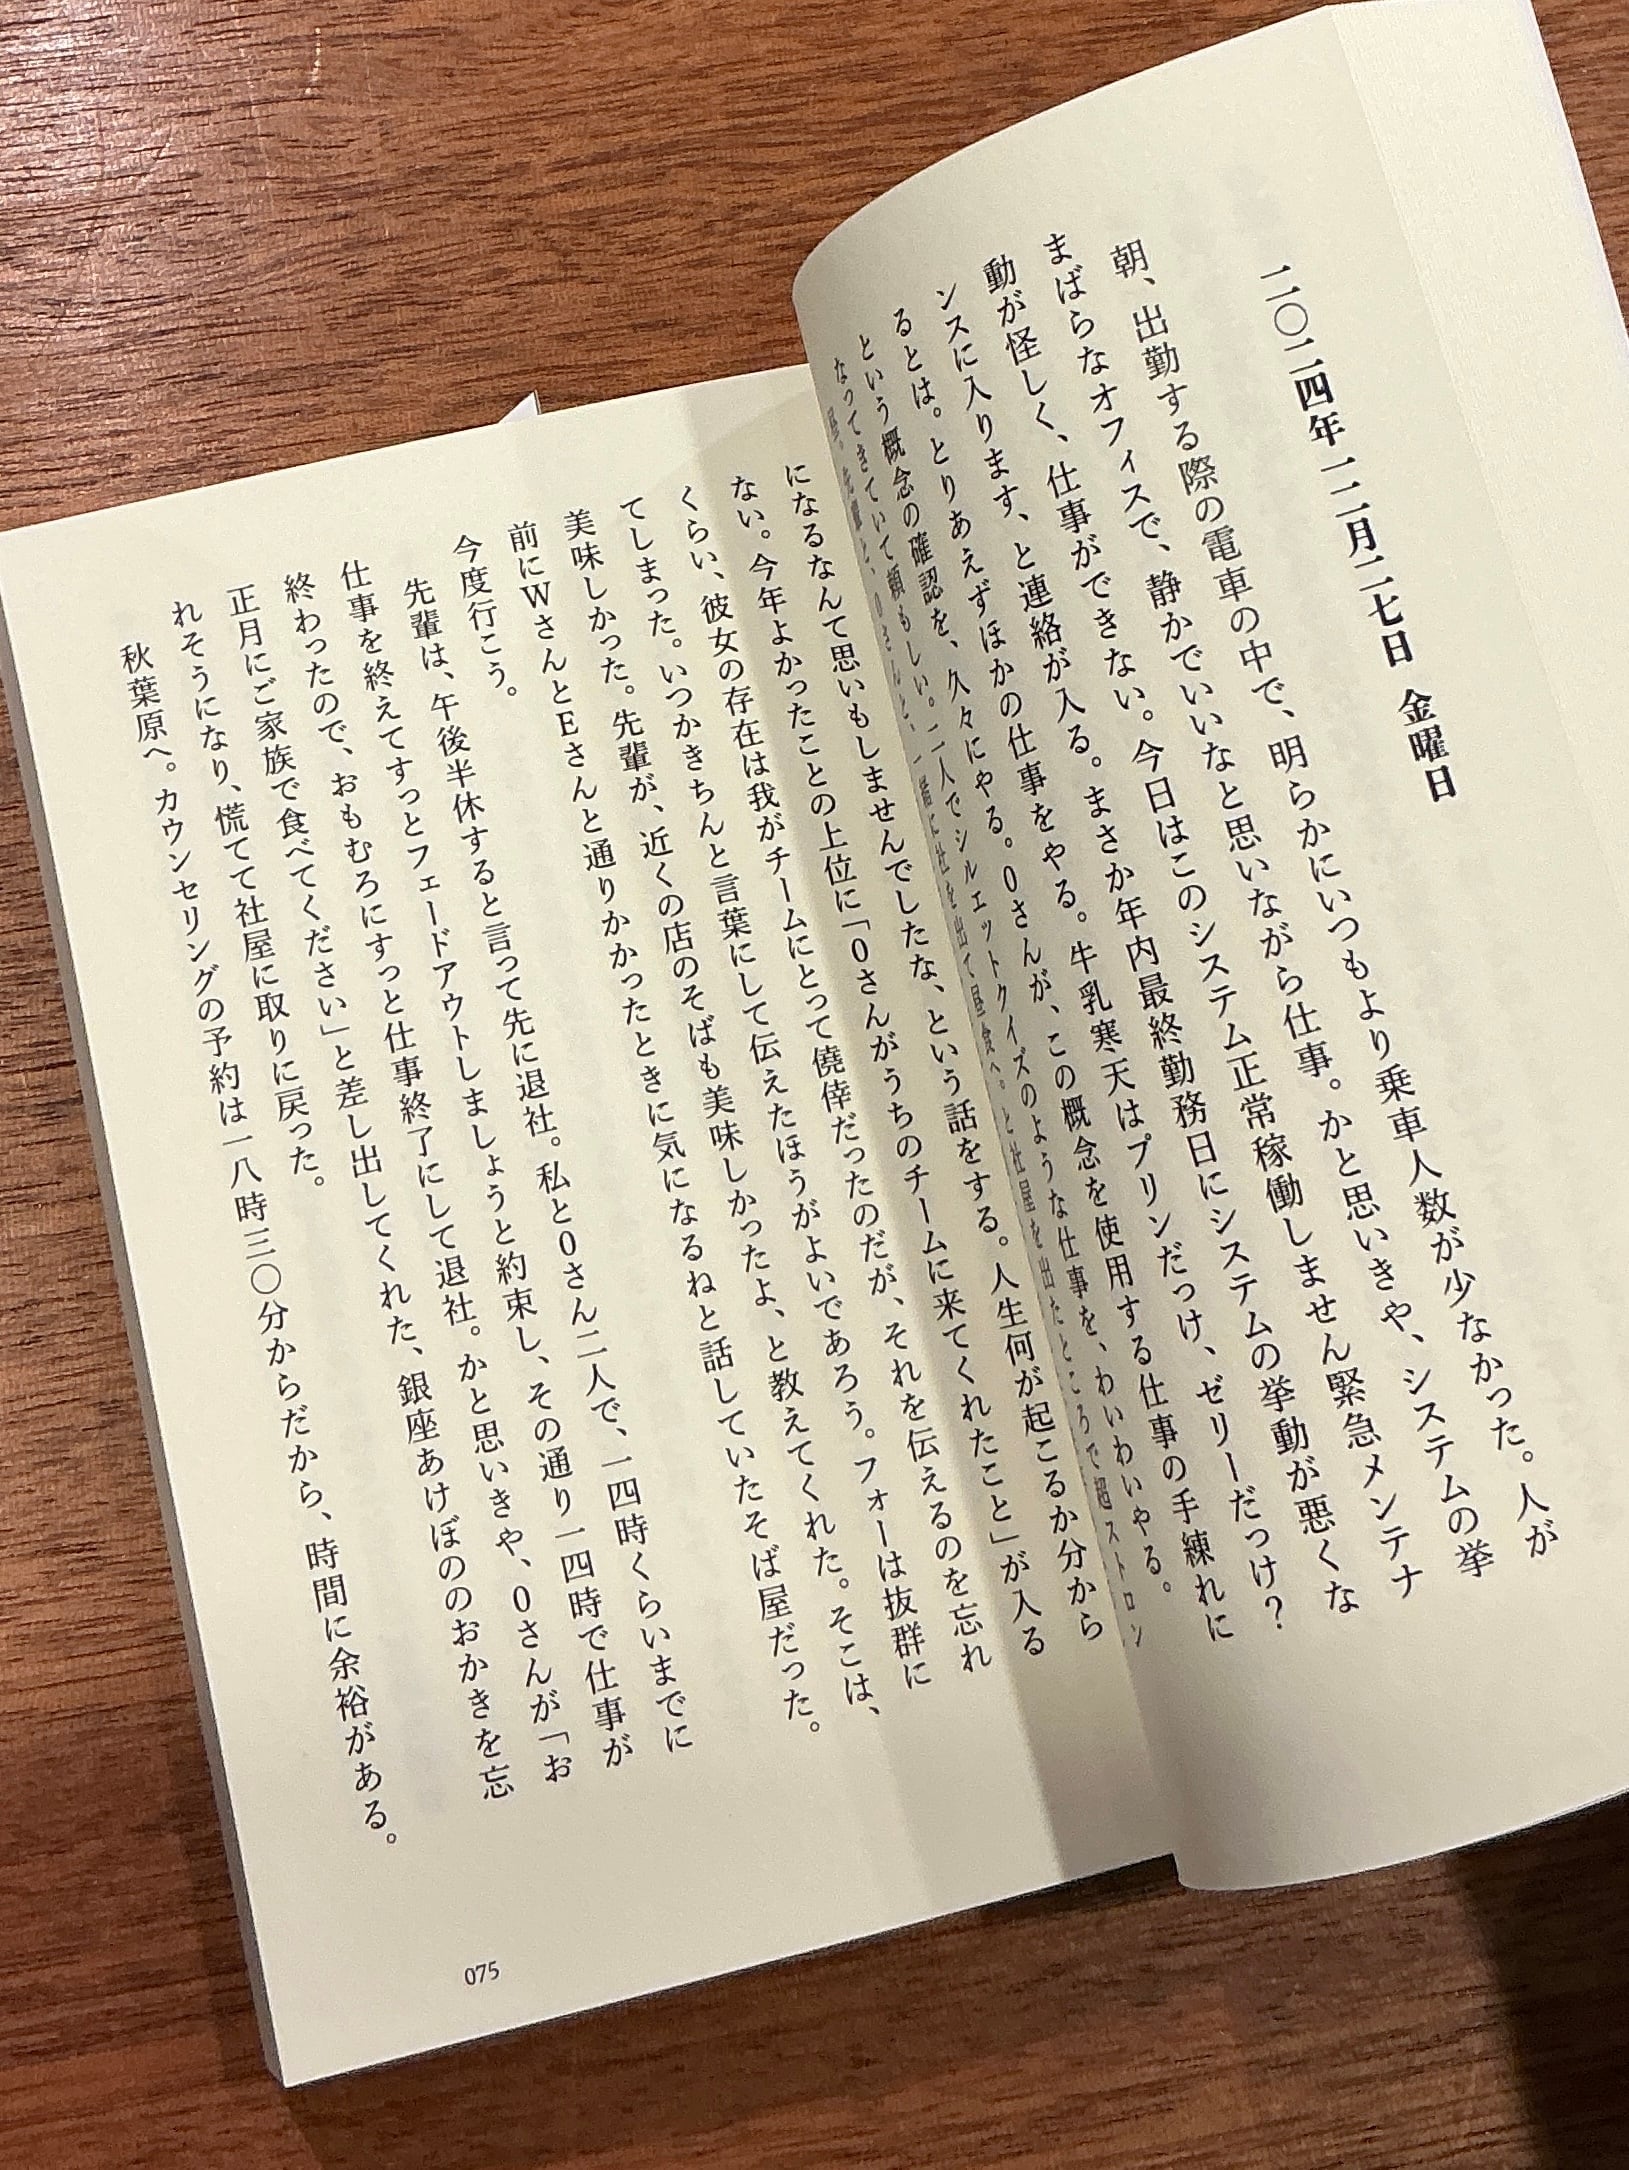 二〇二四年一二月二七日 金曜日
朝、出勤する際の電車の中で、明らかにいつもより乗車人数が少なかった。人が
まばらなオフィスで、静かでいいなと思いながら仕事。かと思いきや、システムの挙
動が怪しく、仕事ができない。今日はこのシステム正常稼働しません緊急メンテナ
ンスに入ります、と連絡が入る。まさか年内最終勤務日にシステムの挙動が悪くな
るとは。とりあえずほかの仕事をやる。牛乳寒天はプリンだっけ、ゼリーだっけ？
という概念の確認を、久々にやる。Oさんが、この概念を使用する仕事の手練れに
なってきていて頼もしい。二人でシルエットクイズのような仕事を、わいわいやる。
昼。先輩と、Oさんと、一緒に社を出て昼食へ。と社屋を出たところで超ストロン
になるなんて思いもしませんでしたな、という話をする。人生何が起こるか分から
ない。今年よかったことの上位に「Oさんがうちのチームに来てくれたこと」が入る
くらい、彼女の存在は我がチームにとって僥倖だったのだが、それを伝えるのを忘れ
てしまった。いつかきちんと言葉にして伝えたほうがよいであろう。フォーは抜群に
美味しかった。先輩が、近くの店のそばも美味しかったよ、と教えてくれた。そこは、
前にWさんとEさんと通りかかったときに気になるねと話していたそば屋だった。
今度行こう。
先輩は、午後半休すると言って先に退社。私とOさん二人で、一四時くらいまでに
仕事を終えてすっとフェードアウトしましょうと約束し、その通り一四時で仕事が
終わったので、おもむろにすっと仕事終了にして退社。かと思いきや、Oさんが「お
正月にご家族で食べてください」と差し出してくれた、銀座あけぼののおかきを忘
れそうになり、慌てて社屋に取りに戻った。
秋葉原へ。カウンセリングの予約は一八時三〇分からだから、時間に余裕がある。
075